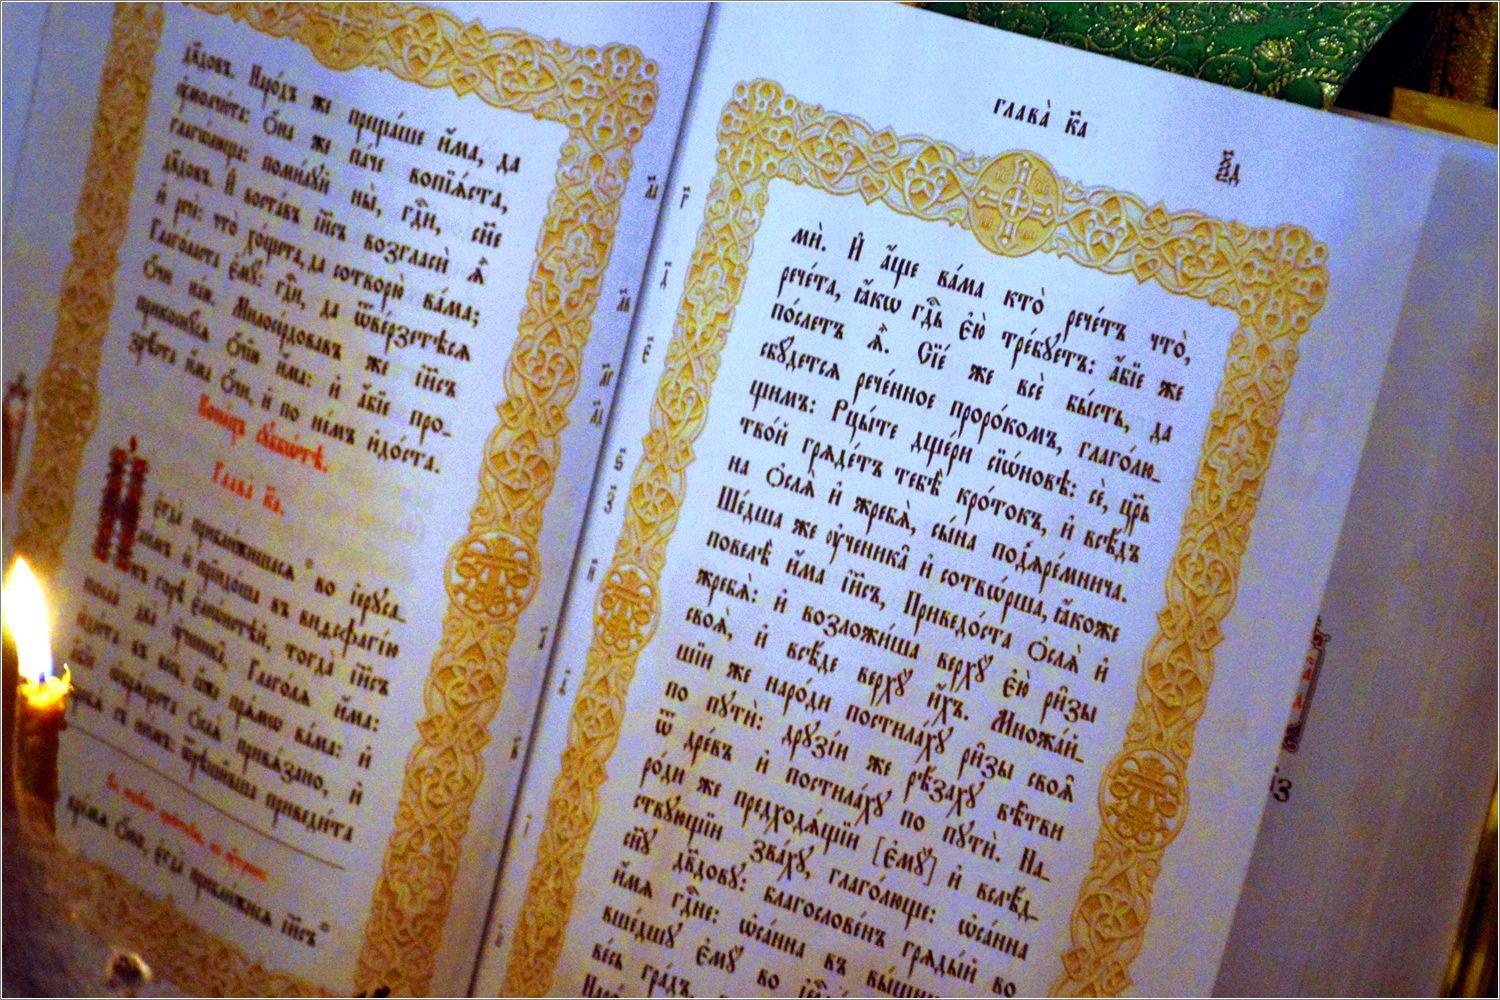 дв҃довъ. Наро́дъ же преща́ше и҆́ма, да
ᲂу҆молчи́та: ѻ҆́на же па́че вопїѧ́ста,
глагѡ́люща: поми́лꙋй ны̀, гдⷭ҇и, сн҃е
дв҃довъ. И҆ воста́въ і҆и҃съ возгласѝ ѧ҆̀
и҆ речѐ: что̀ хо́щета, да сотворю̀ ва́ма;
Глаго́ласта є҆мꙋ̀: гдⷭ҇и, да ѿве́рзетѣсѧ
ѻ҆́чи на́ю. Милосе́рдовавъ же і҆и҃съ
прикоснꙋ́сѧ ѻ҆́чїю и҆́ма: и҆ а҆́бїе про-
зрѣ́ста и҆́ма ѻ҆́чи, и҆ по не́мъ и҆до́ста.
Коне́цъ сꙋббѡ́тѣ.
Глава̀ к҃а.
И҆ є҆гда̀ прибли́жишасѧ во і҆ерꙋса-
ли́мъ и҆ прїидо́ша въ виѳсфагі́ю
къ горѣ̀ є҆леѡ́нстѣй, тогда̀ і҆и҃съ
посла̀ два̀ ᲂу҆чєника̑, Глаго́лѧ и҆́ма:
и҆ди́та въ ве́сь, ꙗ҆́же прѧ́мѡ ва́ма: и҆
а҆́бїе ѡ҆брѧ́щета ѻ҆слѧ̀ привѧ́зано, и҆
жребѧ̀ съ ни́мъ: ѿрѣши̑вша приведи́та
вре́мѧ ѻ҆́но, є҆гда̀ прибли́жисѧ і҆и҃съ
глава̀ к҃а
мѝ. И҆ а҆́ще ва́ма кто̀ рече́тъ что̀,
рече́та, ꙗ҆́кѡ гдⷭ҇ь є҆ю̀ тре́бꙋетъ: а҆́бїе же
по́слетъ ѧ҆̀. Сїе́ же всѐ бы́сть, да
сбꙋ́детсѧ рече́нное проро́комъ, глаго́лю-
щимъ: Рцы́те дще́ри сїѡ́новѣ: сѐ, цр҃ь
тво́й грѧде́тъ тебѣ̀ кро́токъ, и҆ всѣ́дъ
на ѻ҆слѧ̀ и҆ жребѧ̀, сы́на подъѧре́мнича.
Ше́дша же ᲂу҆чєника̑ и҆ сотвѡ́рша, ꙗ҆́коже
повелѣ̀ и҆́ма і҆и҃съ, Приведо́ста ѻ҆слѧ̀ и҆
жребѧ̀: и҆ возложи́ша верхꙋ̀ є҆ю̀ ри̑зы
своѧ̑, и҆ всѣ́де верхꙋ̀ и҆́хъ. Мно́жай-
шїи же наро́ди постила́хꙋ ри̑зы своѧ̑
по пꙋтѝ: дрꙋзі́и же рѣ́захꙋ вѣ̑тви
ѿ дре́въ и҆ постила́хꙋ по пꙋтѝ. На-
ро́ди же предходѧ́щїи [є҆мꙋ̀] и҆ вслѣ́д-
ствꙋющїи зва́хꙋ, глаго́люще: ѡ҆са́нна
сн҃ꙋ дв҃довꙋ: благослове́нъ грѧды́й во
и҆́мѧ гдⷭ҇не: ѡ҆са́нна въ вы́шнихъ
вше́дшꙋ є҆мꙋ̀ во
ве́сь гра́дъ,